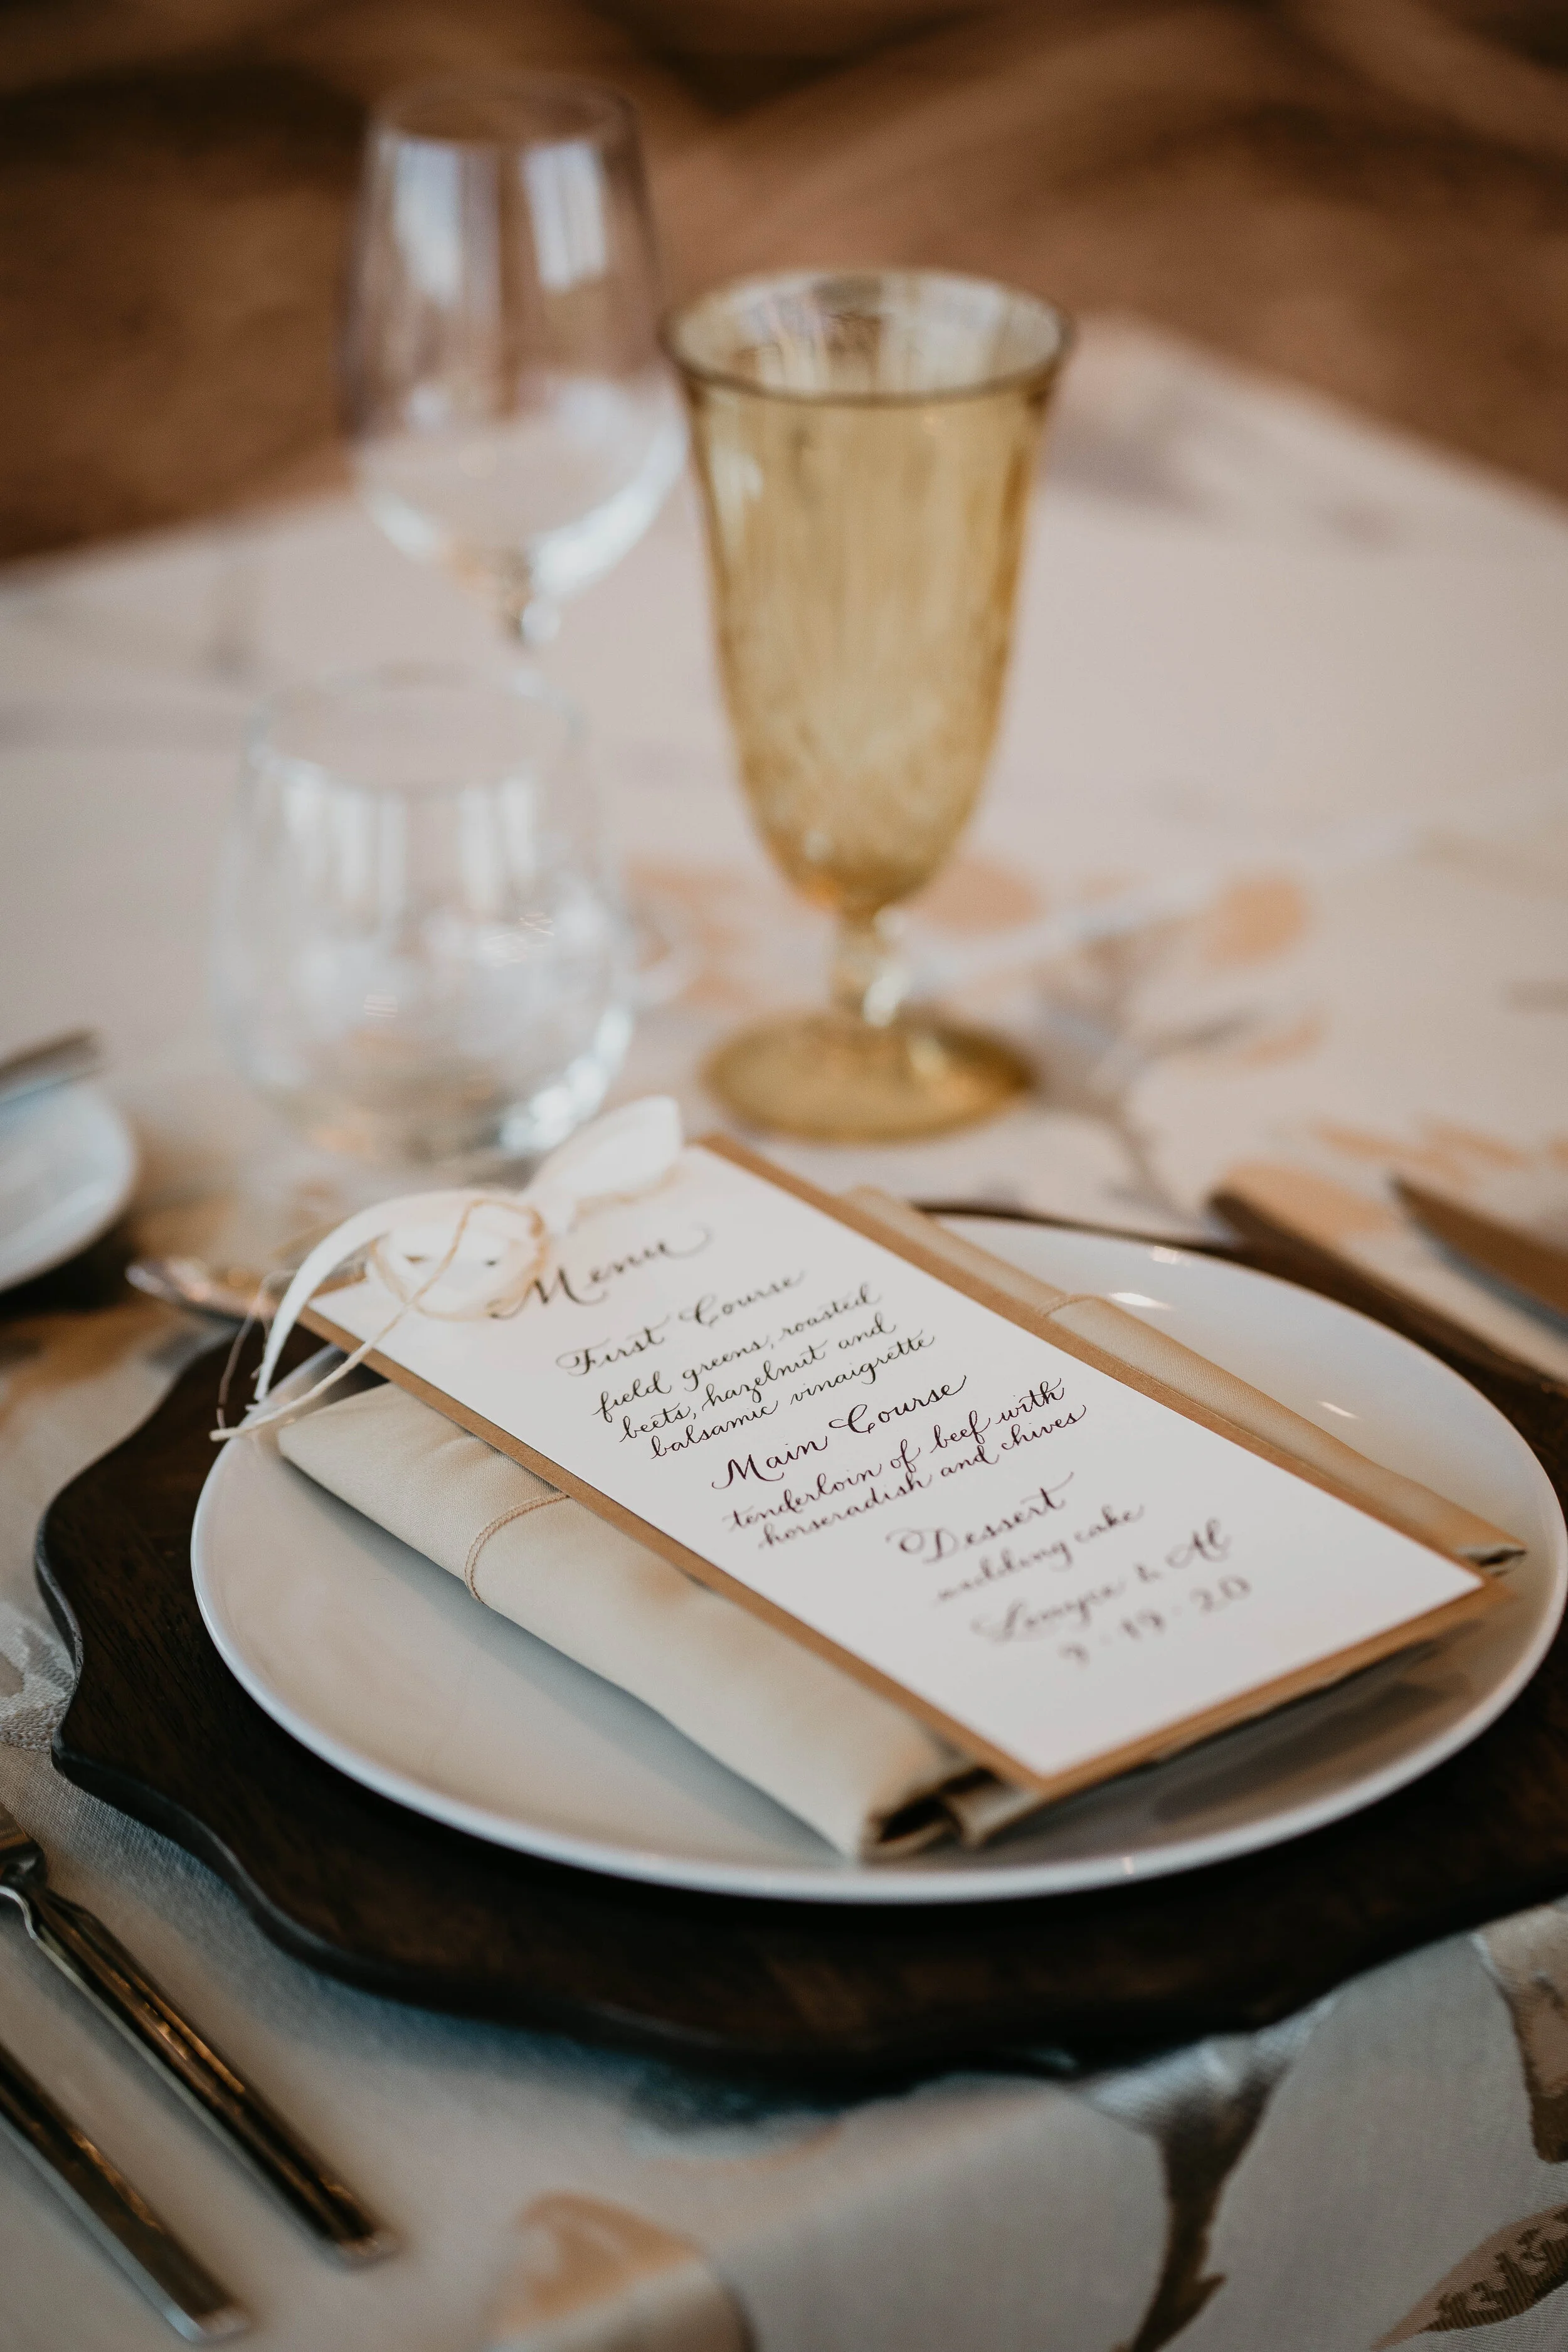 Menu
First Course
field greens, roasted
beets, hazelnut and
balsamic vinaigrette
Main Course
tenderloin of beef with
horseradish and chives
Dessert
wedding cake
& Al